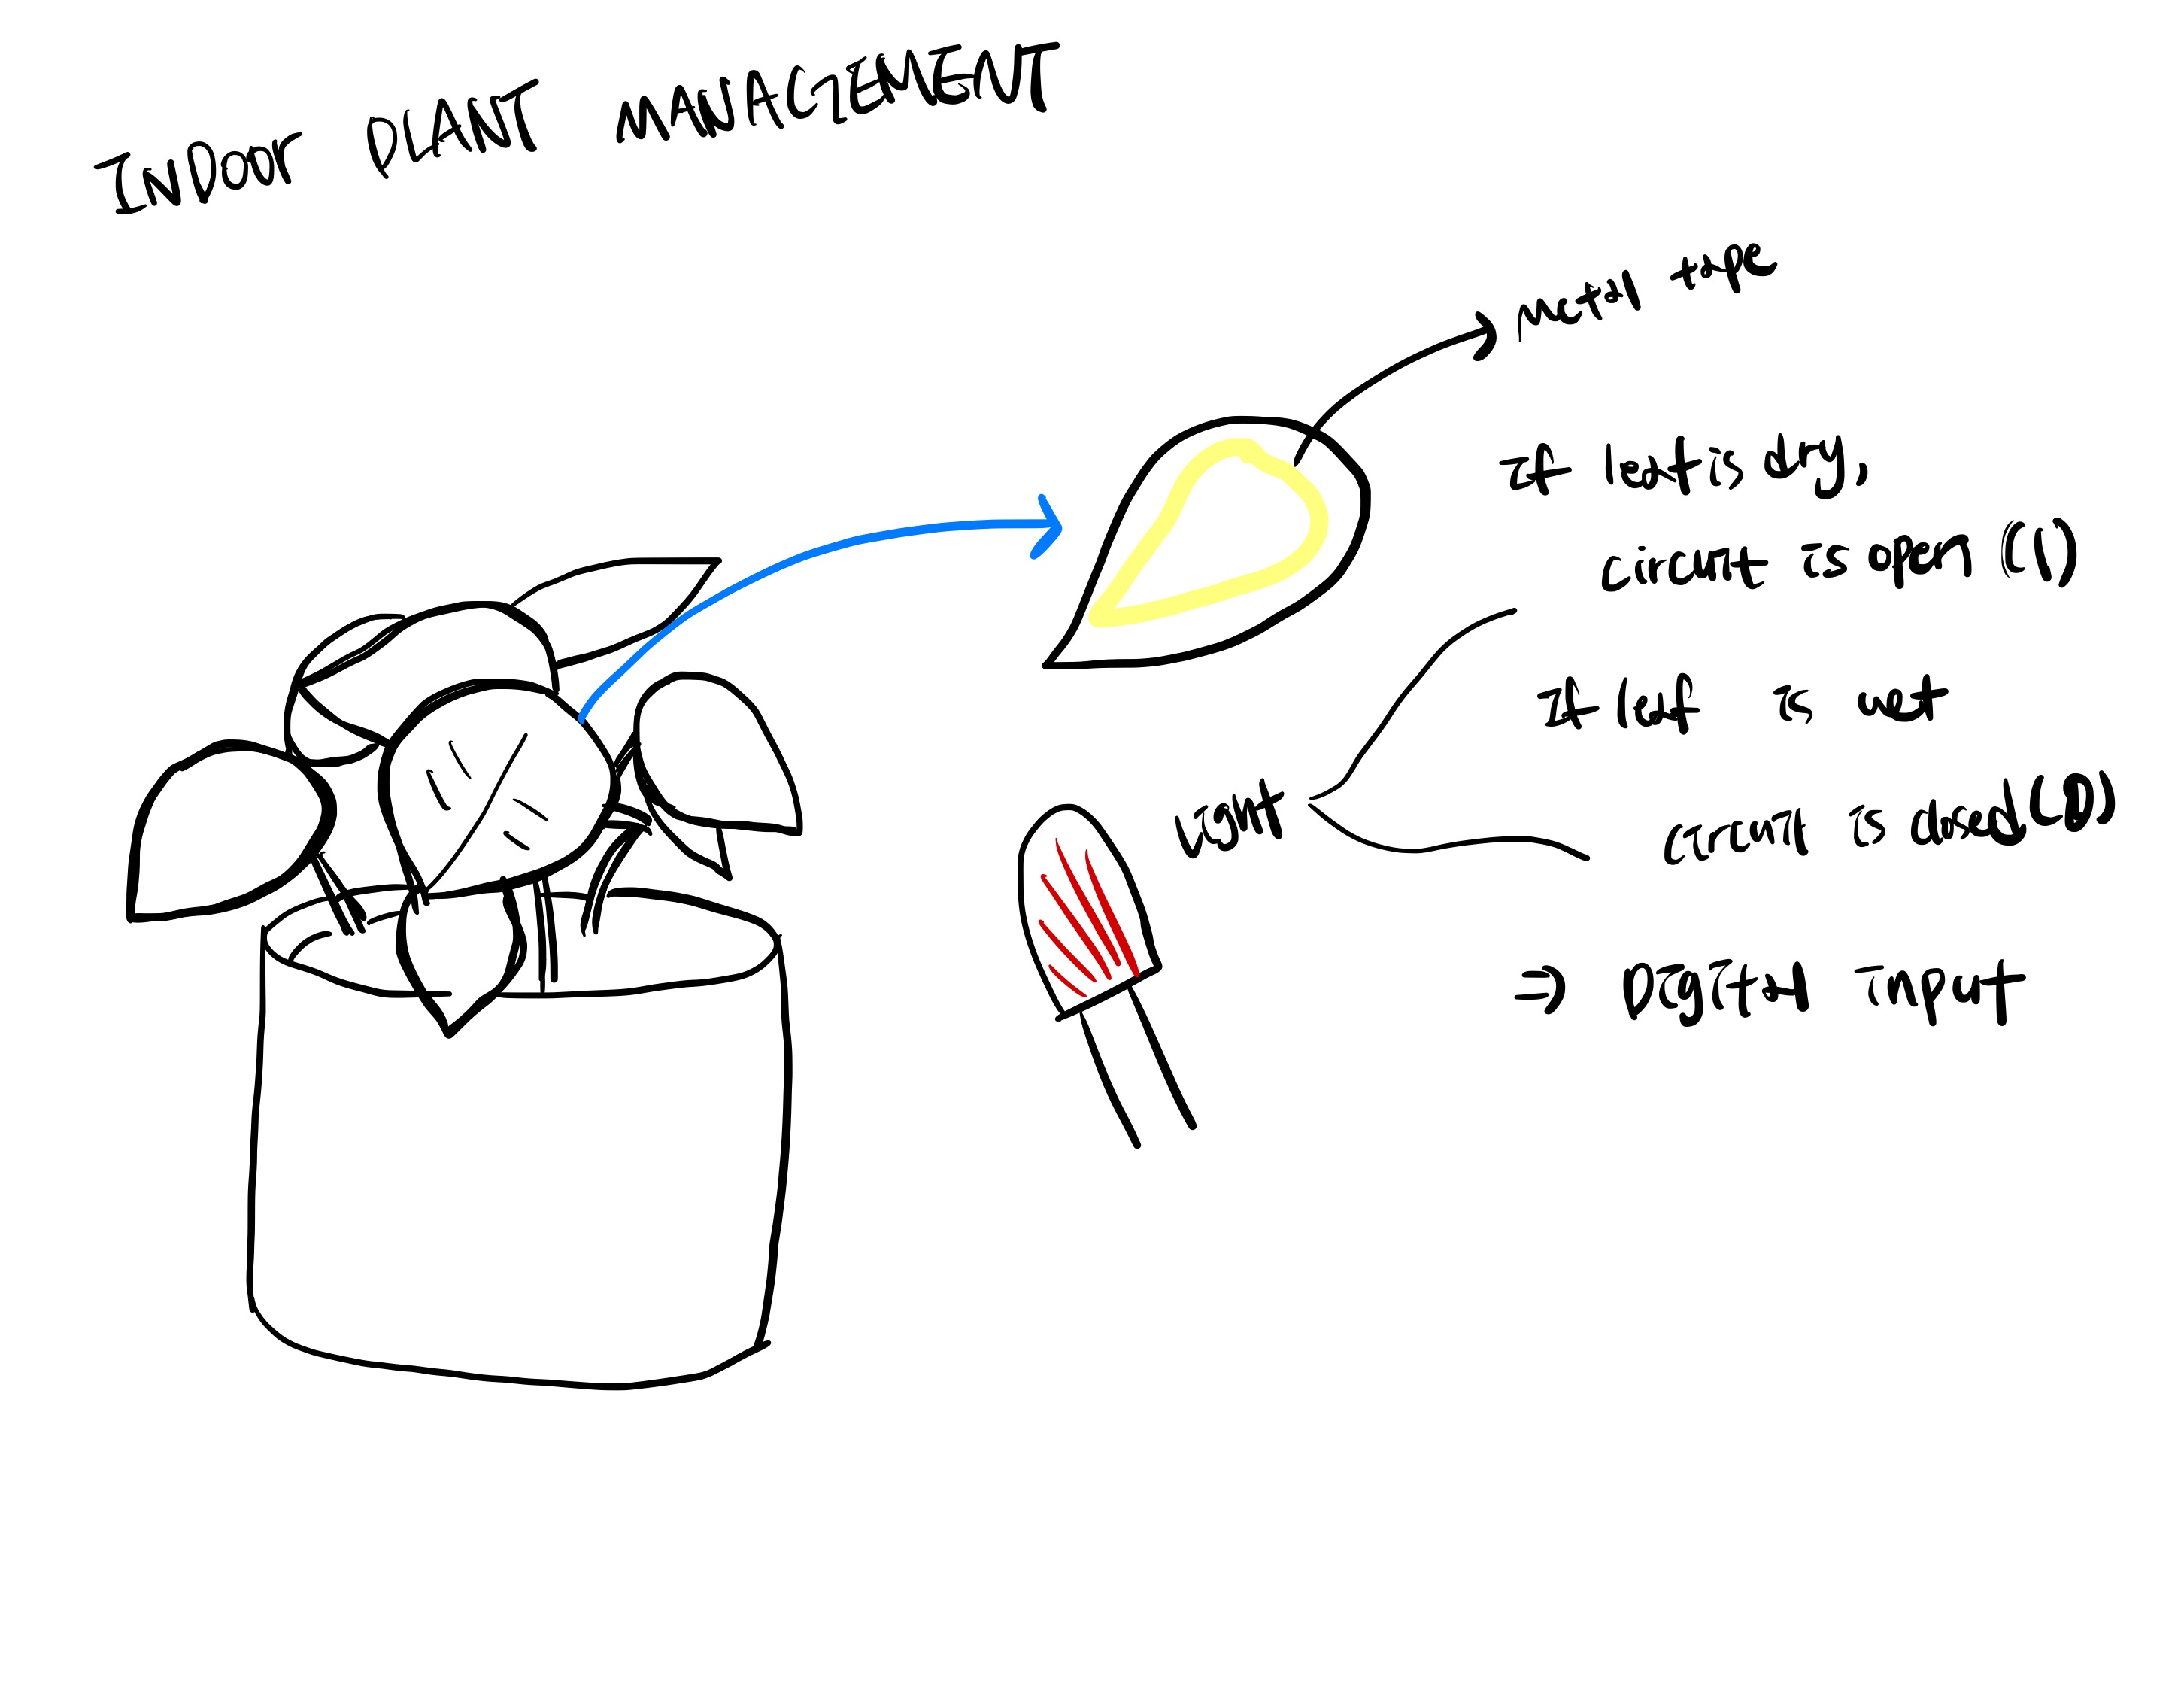 INDOOR PLANT MANAGEMENT
metal tape
If leaf is dry,
circuit is open (1)
If leaf is wet
circuit is closed (0)
Light
⇒ Digital input